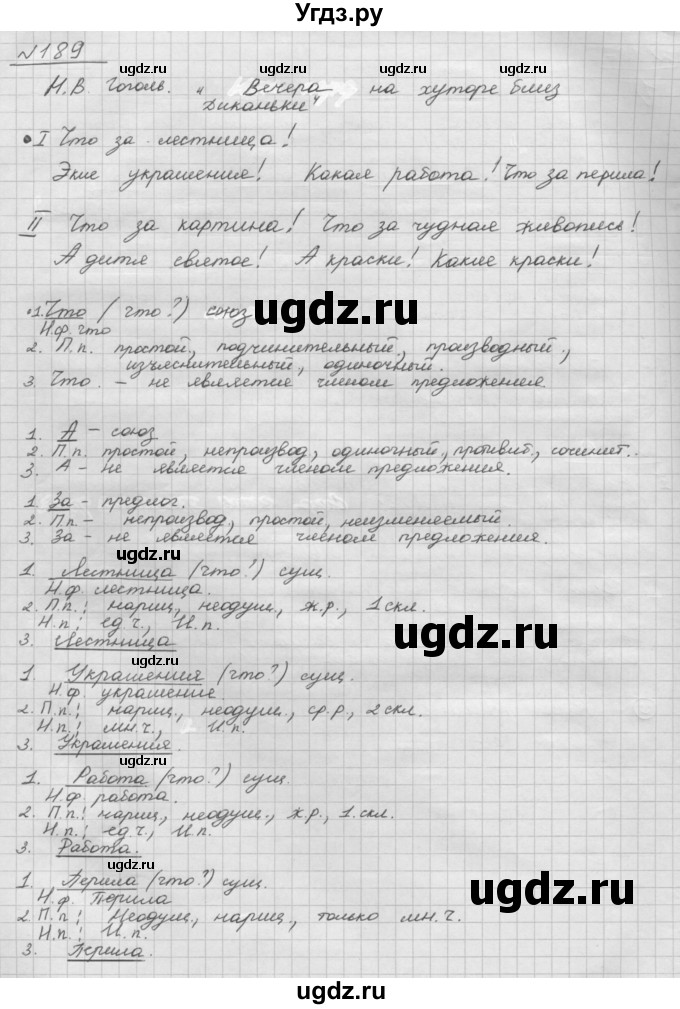 Угdz.ру
№189
ugdz.ru ugdz.ru
Н.В. Гоголь. "Вечера на хуторе близ
Диканьки"
ugdz.ru
I Что за лестница!
Экие украшения! Какая работа! Что за перила!
II Что за картина! Что за чудная живопись!
А дитя святое! А краски! Какие краски!
ugdz.ru
1. Что (что?) союз
Н.ф. что
ugdz.ru
2. П.п. простой, подчинительный, производный,
изъяснительный, одиночный.
3. Что. – не является членом предложения
ugdz.ru
1. А – союз
2. П.п. простой, непроизвод, одиночный, противит, сочинит.
3. А – не является членом предложения.
1 За – предлог.
ugdz.ru
2. П.п – непроизвод, простой, неизменяемый.
3. За – не является членом предложения.
ugdz.ru
1. Лестница (что?) сущ.
Н.ф. лестница.
2. П.п.: нариц, неодуш., ж.р., 1 скл.
Н.п.: ед.ч., И.п.
ugdz.ru
3. Лестница
ugdz.ru
1. Украшения (что?) сущ.
Н.ф. украшение.
2. П.п.: нариц., неодуш., ср.р., 2 скл.
Н.п.: мн.ч., И.п.
3. Украшения.
ugdz.ru
1. Работа (что?) сущ.
Н.ф. работа.
2. П.п.: нариц, неодуш., ж.р., 1. скл.
Н.п.: ед.ч., И.п.
3. Работа.
ugdz.ru
1. Перила (что?) сущ.
Н.ф. Перила
ugdz.ru
2. П.п: Неодуш., нариц., только мн.ч.
Н.п.: И.п.
3. Перила.
ugdz.ru
ugdz.ru